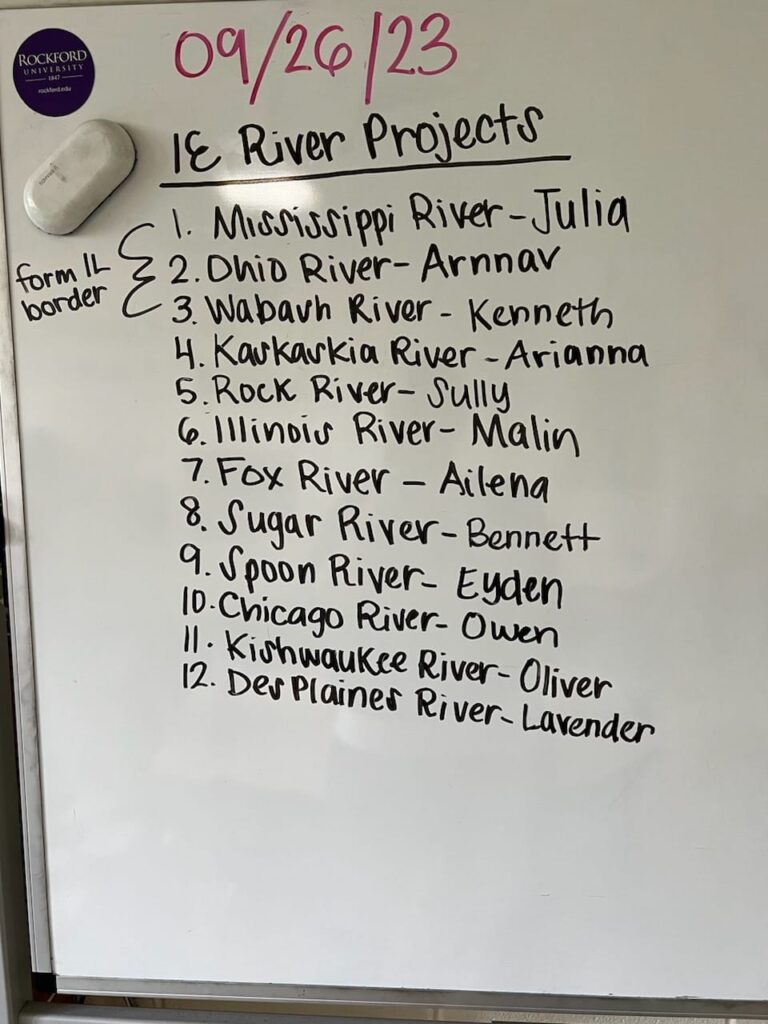 ROCKFORD
UNIVERSITY
1847
rockford.edu
09/26/23
1E River Projects
form IL
border
1. Mississippi River - Julia
2. Ohio River - Arnnav
3. Wabash River - Kenneth
4. Kaskaskia River - Arianna
5. Rock River - Sully
6. Illinois River - Malin
7. Fox River - Ailena
8. Sugar River - Bennett
9. Spoon River - Eyden
10. Chicago River - Owen
11. Kishwaukee River - Oliver
12. Des Plaines River - Lavender